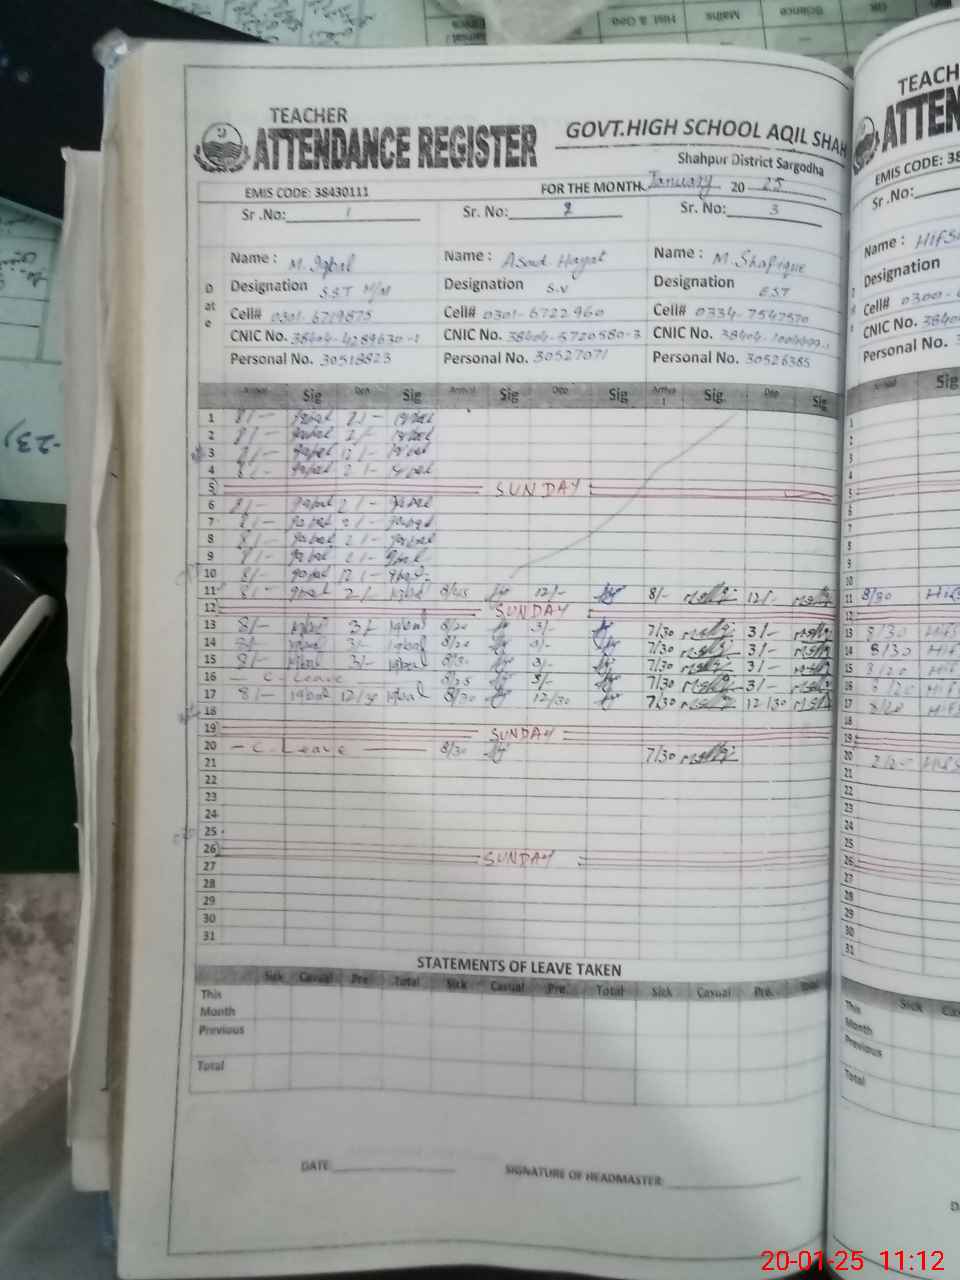 TEACHER
ATTENDANCE REGISTER
GOVT.HIGH SCHOOL AQIL SHAH
Shahpur District Sargodha
EMIS CODE: 38430111 FOR THE MONTH January 20 25
Sr .No: 1 Sr. No: 2 Sr. No: 3
Name : M. Iqbal Name : Asad Hayat Name : M. Shafique
Designation SST M/M Designation S.V Designation EST
Date
Cell# 0301-6719875 Cell# 0301-6722960 Cell# 0334-7547570
CNIC No. 38404-4289630-1 CNIC No. 38404-5720580-3 CNIC No. 38404-
Personal No. 30518823 Personal No. 30527071 Personal No. 30526385
Arrival Sig Dep Sig Arrival Sig Dep Sig Arriva l Sig Dep Sig
1 8/- Iqbal 2/- Iqbal
2 8/- Iqbal 2/- Iqbal
3 8/- Iqbal 12/- Iqbal
4 8/- Iqbal 2/- Iqbal
5 SUNDAY
6 8/- Iqbal 2/- Iqbal
7 8/- Iqbal 2/- Iqbal
8 8/- Iqbal 2/- Iqbal
9 8/- Iqbal 2/- Iqbal
10 8/- Iqbal 12/- Iqbal
11 8/- Iqbal 2/- Iqbal 8/45 12/- 8/- 12/-
12 SUNDAY
13 8/- Iqbal 3/- Iqbal 8/20 3/- 7/30 3/-
14 8/- Iqbal 3/- Iqbal 8/20 3/- 7/30 3/-
15 8/- Iqbal 3/- Iqbal 3/- 7/30 3/-
16 - C. Leave 8/25 3/- 7/30 3/-
17 8/- Iqbal 12/30 Iqbal 8/30 12/30 7/30 12/30
18
19 SUNDAY
20 - C. Leave 8/30 7/30
21
22
23
24
25
26 SUNDAY
27
28
29
30
31
STATEMENTS OF LEAVE TAKEN
Sick Casual Pre Total Sick Casual Pre. Total Sick Casual Pre. Total
This
Month
Previous
Total
DATE: SIGNATURE OF HEADMASTER
TEACH
ATTEN
EMIS CODE: 38
Sr .No:
Name : HifS
Designation
Cell# 0300-
CNIC No. 3840
Personal No. 3
Sig
1
2
3
4
5
6
7
8
9
10
11 8/30 HifS
12
13 8/30 HifS
14 8/30 HifS
15 8/20 HifS
16 8/20 HifS
17 8/20 HifS
18
19
20 HifS
21
22
23
24
25
26
27
28
29
30
31
Sick
This
Month
Previous
Total
20-01-25 11:12